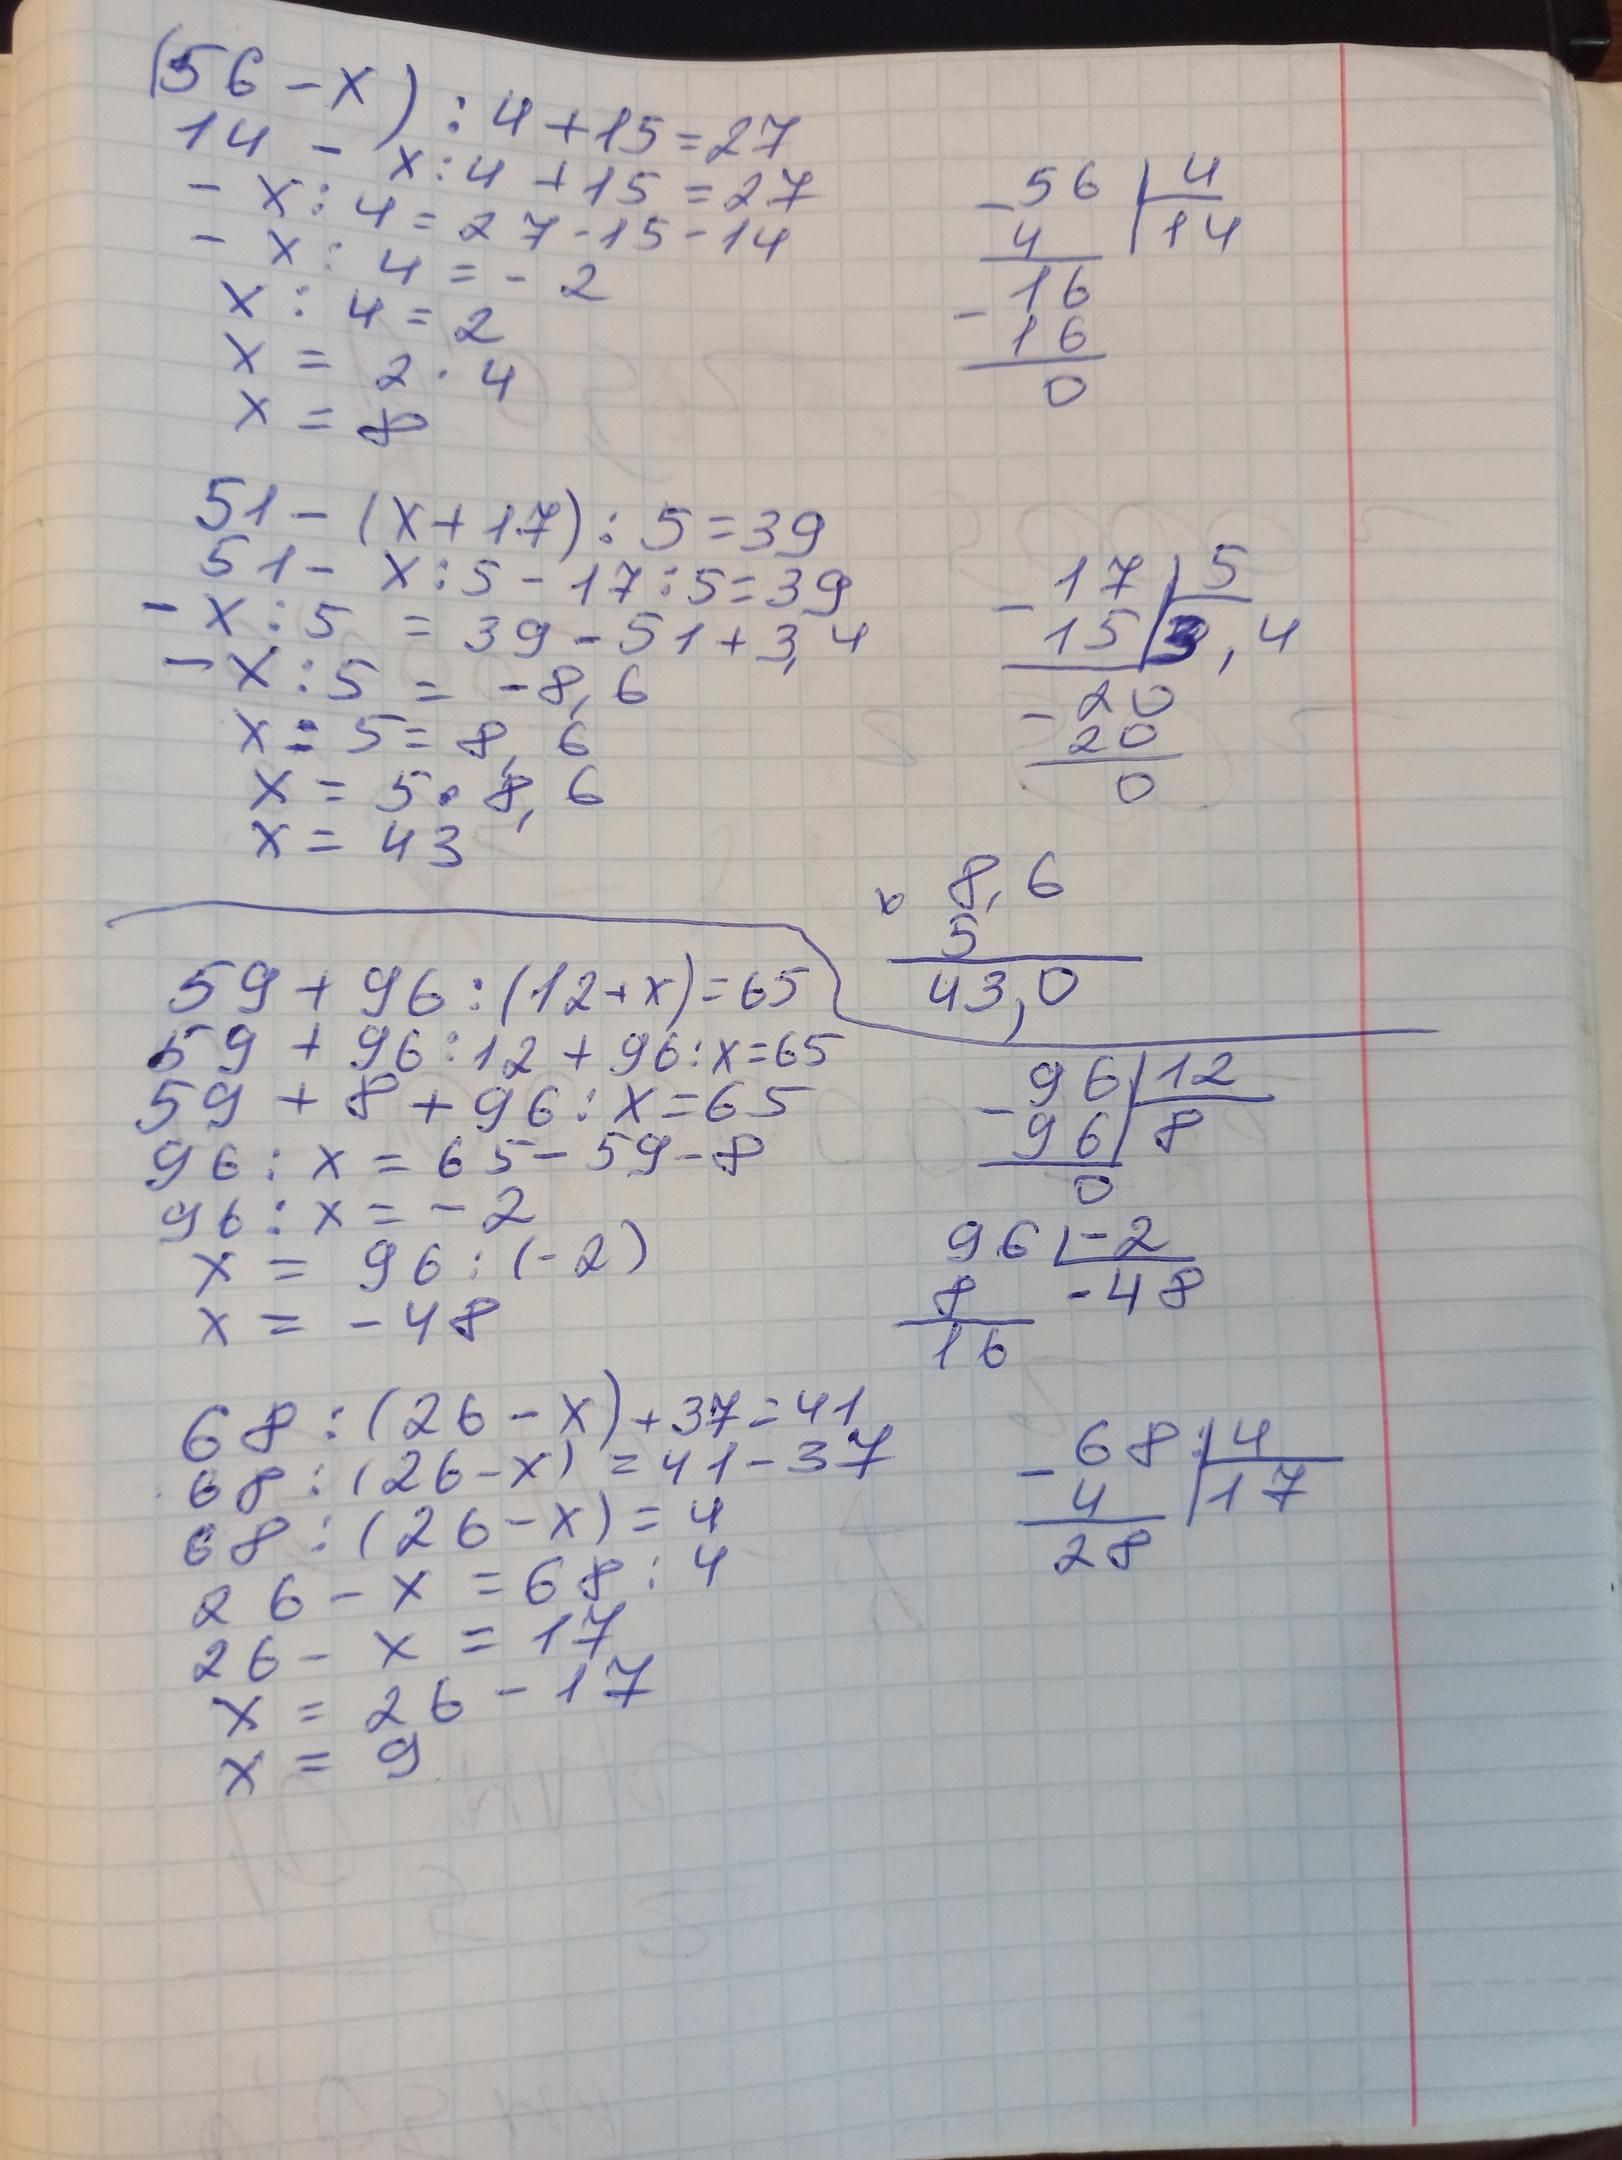 (56 - x) : 4 + 15 = 27
14 - x : 4 + 15 = 27
- x : 4 = 27 - 15 - 14
- x : 4 = - 2
x : 4 = 2
x = 2 · 4
x = 8
- 56 | 4
4 | 14
- 16
16
0
51 - (x + 17) : 5 = 39
51 - x : 5 - 17 : 5 = 39
- x : 5 = 39 - 51 + 3,4
- x : 5 = - 8,6
x : 5 = 8,6
x = 5 · 8,6
x = 43
- 17 | 5
15 | 3,4
- 20
20
0
x 8,6
5
43,0
59 + 96 : (12 + x) = 65
59 + 96 : 12 + 96 : x = 65
59 + 8 + 96 : x = 65
96 : x = 65 - 59 - 8
96 : x = - 2
x = 96 : (-2)
x = - 48
- 96 | 12
96 | 8
0
96 | -2
8 -48
16
68 : (26 - x) + 37 = 41
68 : (26 - x) = 41 - 37
68 : (26 - x) = 4
26 - x = 68 : 4
26 - x = 17
x = 26 - 17
x = 9
- 68 | 4
4 | 17
28